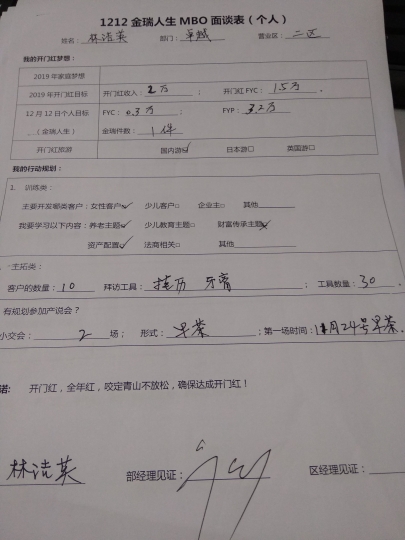 1212 金瑞人生 MBO 面谈表（个人）
姓名：林洁英 部门：卓越 营业区：二区
我的开门红梦想：
2019 年家庭梦想
2019 年开门红目标 开门红收入：2万 ； 开门红 FYC：1.5万 。
12 月 12 日个人目标 FYC：0.3万 ； FYP：3.2万
（金瑞人生） 金瑞件数：1件
开门红旅游 国内游☑ 日本游□ 英国游□
我的行动规划：
1. 训练类：
主要开发哪类客户：女性客户☑ 少儿客户□ 企业主□ 其他
我要学习以下内容：养老主题☑ 少儿教育主题□ 财富传承主题☑
资产配置☑ 法商相关□ 其他
主拓类：
客户的数量：10 拜访工具：挂历 牙膏 ； 工具数量：30 。
有规划参加产说会？
小交会：2 场； 形式：早茶 ；第一场时间：11月24号早茶。
诺： 开门红，全年红，咬定青山不放松，确保达成开门红！
林洁英 部经理见证： 区经理见证：